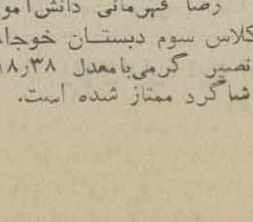 رضا قهرمانی دانش‌آمو
کلاس سوم دبستان خوجا
نصیر گرمی‌با‌معدل ۱۸٫۳۸
شاگرد ممتاز شده است.